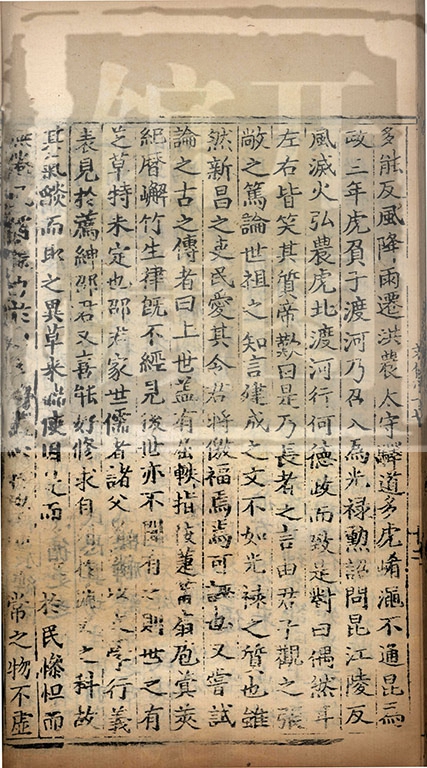 多能反風降雨遷洪農太守驛道多虎崤澠不通昆爲
政三年虎負子渡河乃召入爲光禄勲詔問昆江陵反
風滅火弘農虎北渡河行何德政而致是對曰偶然耳
左右皆笑其質帝歎曰是乃長者之言由君子觀之張
敞之篤論世祖之知言建成之文不如光禄之質也雖
然新昌之吏民愛其令君將徼福焉焉可誣也又嘗試
論之古之傳者曰上世盖有屈軼指佞蓮莆扇庖蓂莢
紀曆嶰竹生律旣不經見後世亦不聞有之則世之有
芝草特未定也邵君家世儒者諸父 文學行義
表見於薦紳邵君又喜能好修求自 之科故
其氣燄而取之異草米 使 而 於民慘怛而
常之物不虛